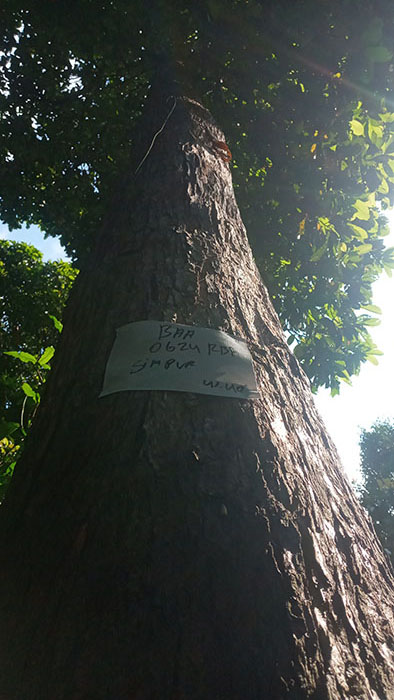 BAA
0624 RBF
SIMPUR